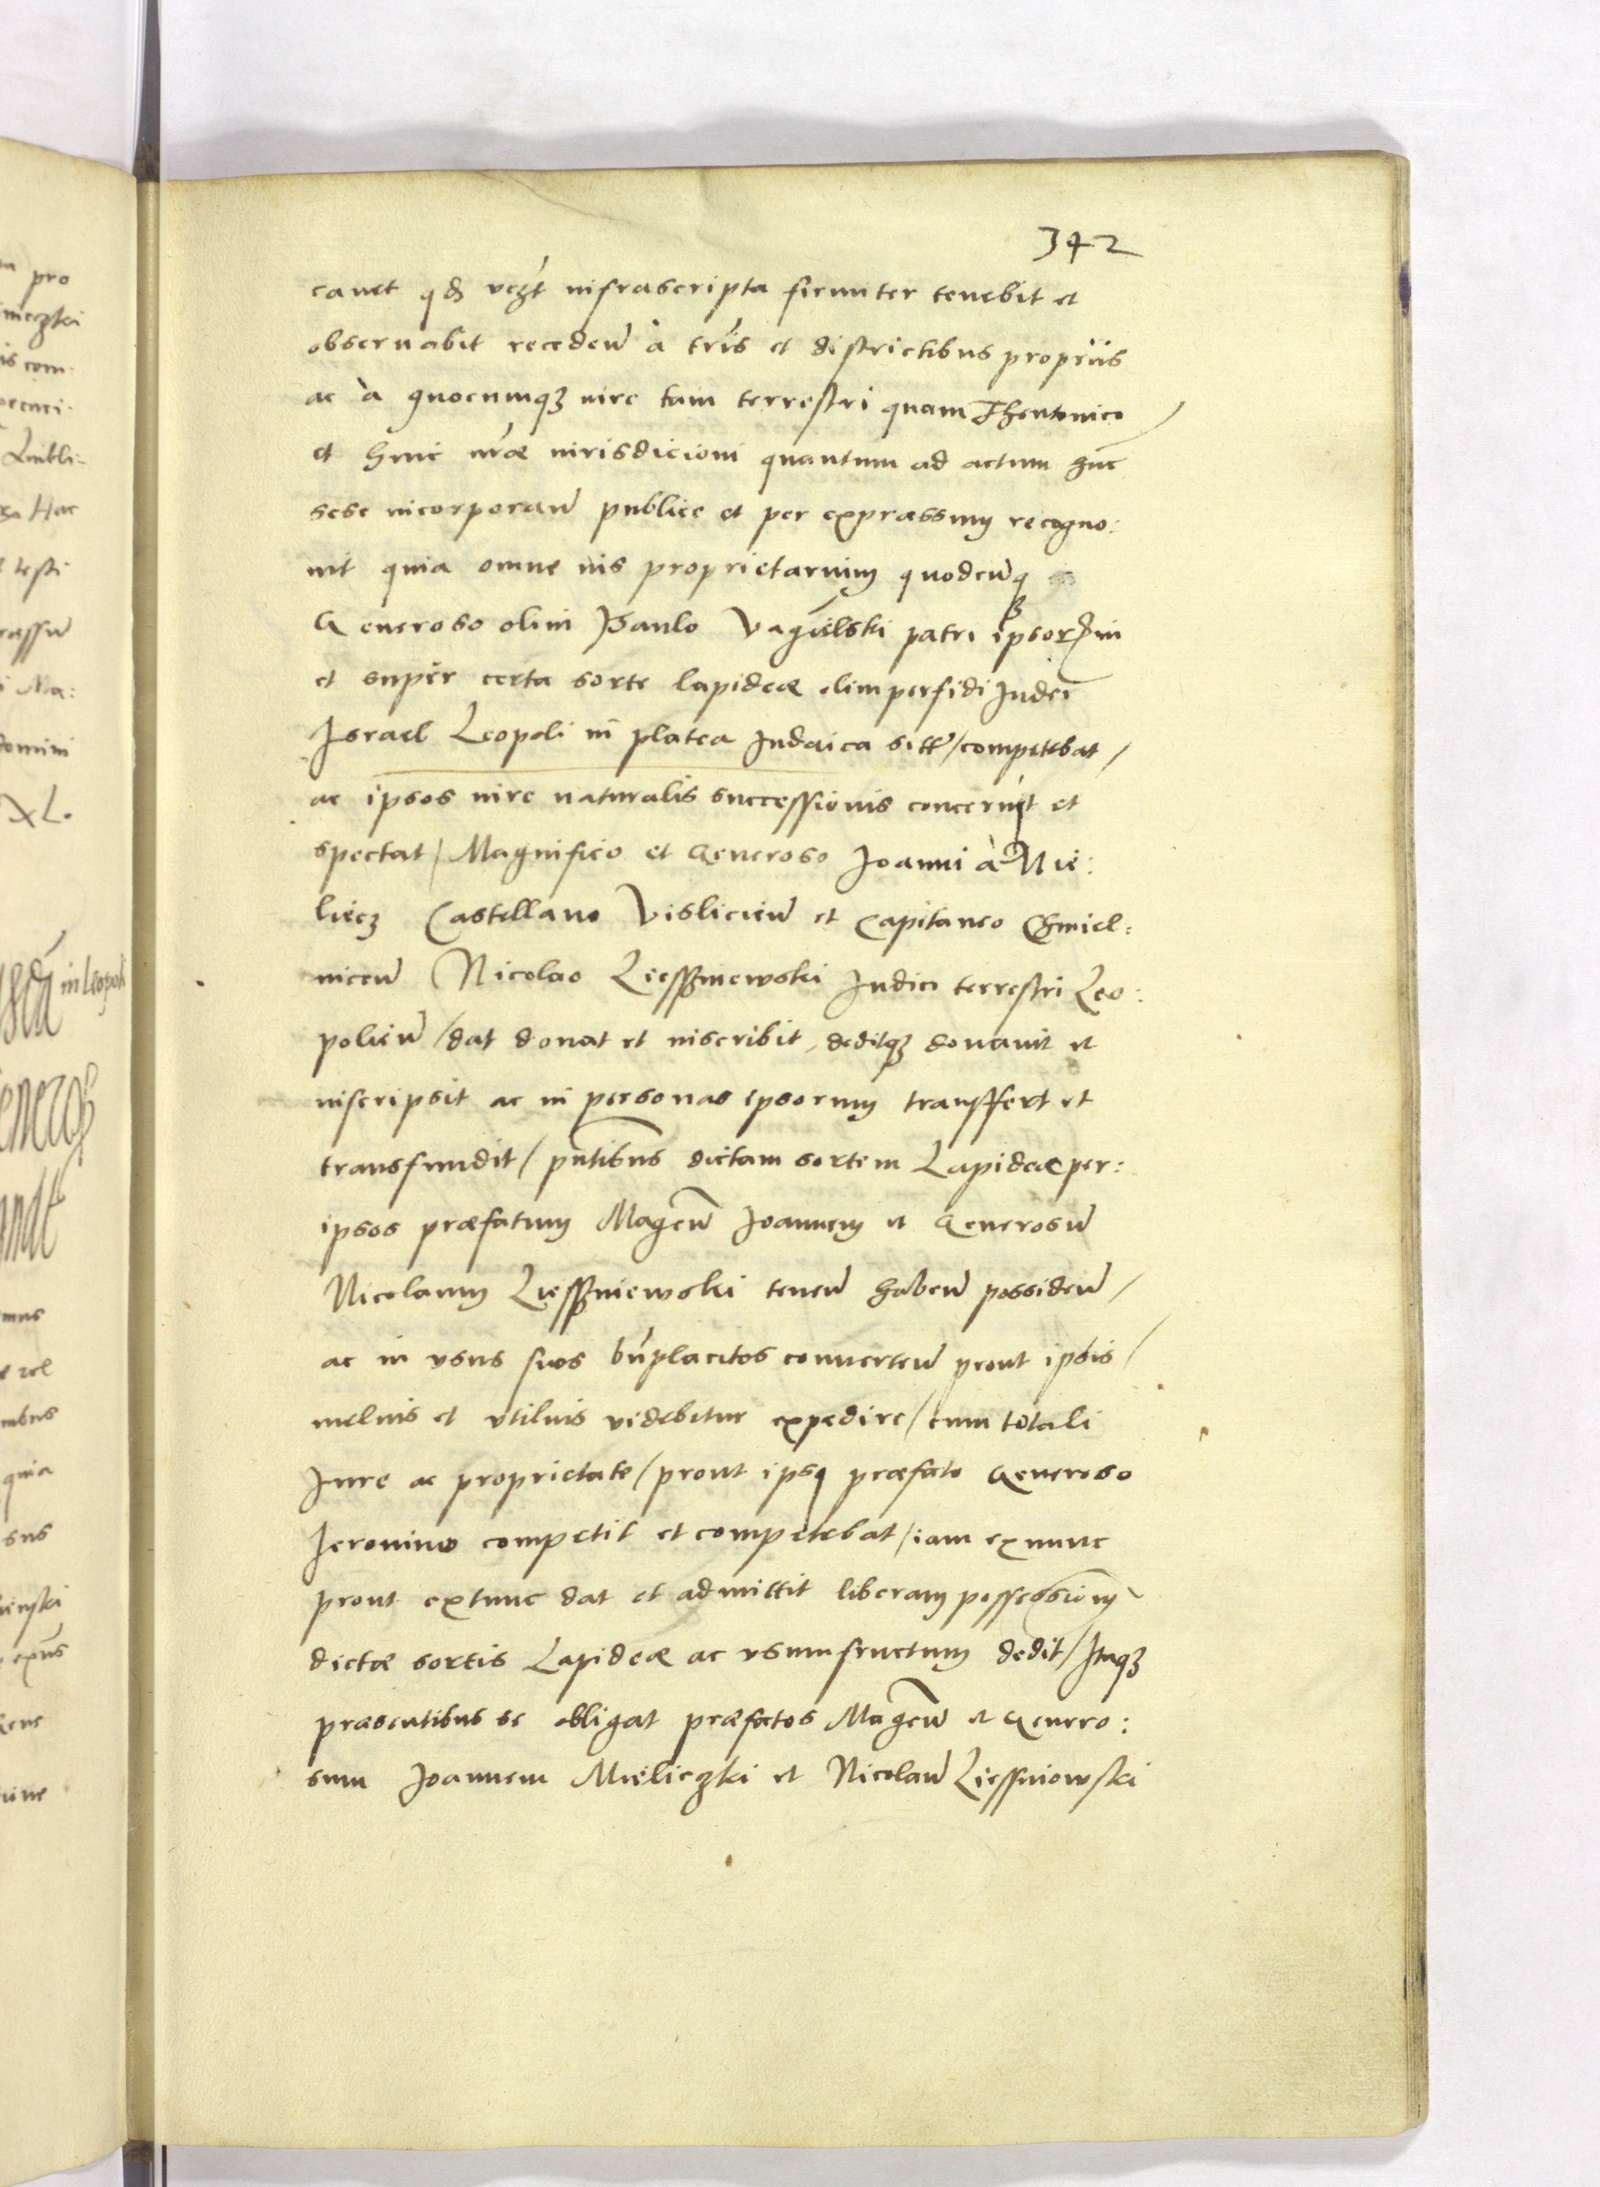 342
cavet qd infrascripta firmiter tenebit et
observabit recedeñ à tris et districtibus propriis
ac à quocumqz iure tam terrestri quam Theutonico /
et huic nrae iurisdicioni quantum ad actum hũc
sese incorporañ publice et per expraessum recogno:
vit quia omne ius proprietarium quodcuqz
Generoso olim Paulo Vagielski patri ipsorum
et super certa sorte lapideae olim perfidi Judei
Israel Leopoli in platea Judaica sitt / competebat /
ac ipsos iure naturalis successionis concernit et
spectat / Magnifico et Generoso Joanni à Mie:
liecz Castellano Vislicieñ et Capitaneo Chmiel:
niceñ Nicolao Liessniewski Judici terrestri Leo:
policeñ / dat donat et inscribit, deditqz donavit et
inscripsit ac in personas ipsorum transffert et
transfundit / pñtibus dictam sortem Lapideae per:
ipsos praefatum Mageũ Joannem et Generosũ
Nicolaum Liessniewski teneñ habeñ possideñ /
ac in usus suos bñplacitos converteñ prout ipsis /
melius et utilius videbitur expedire / cum totali
Jure ac proprietate / prout ipsi praefato Generoso
Jeronimo competit et competebat / iam exnunc
prout extunc dat et admittit liberam possessionem
dictae sortis Lapideae ac usumfructum dedit / Itaqz
praesentibus se obligat praefatos Mageũ et Genero:
sum Joannem Mieliczki et Nicolaũ Liessniowski
in Leopoli